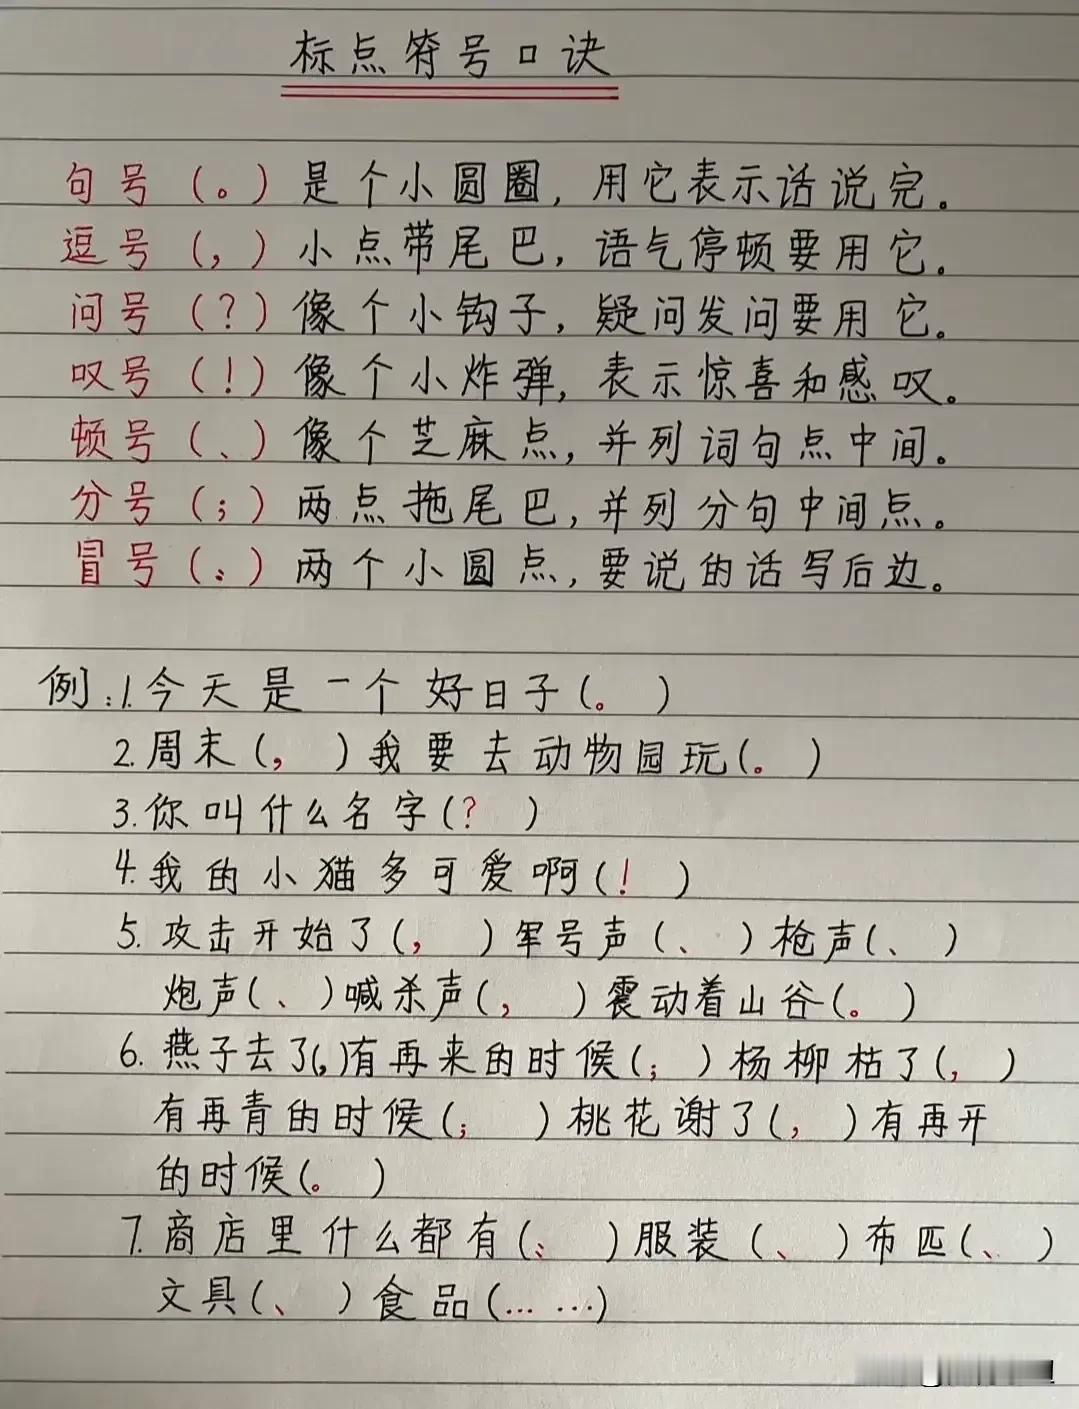 标点符号口诀
句号（。）是个小圆圈，用它表示话说完。
逗号（，）小点带尾巴，语气停顿要用它。
问号（？）像个小钩子，疑问发问要用它。
叹号（！）像个小炸弹，表示惊喜和感叹。
顿号（、）像个芝麻点，并列词句点中间。
分号（；）两点拖尾巴，并列分句中间点。
冒号（：）两个小圆点，要说的话写后边。
例：1.今天是一个好日子（。）
2.周末（，）我要去动物园玩（。）
3.你叫什么名字（？）
4.我的小猫多可爱啊（！）
5.攻击开始了（，）军号声（、）枪声（、）
炮声（、）喊杀声（，）震动着山谷（。）
6.燕子去了（，）有再来的时候（；）杨柳枯了（，）
有再青的时候（；）桃花谢了（，）有再开
的时候（。）
7.商店里什么都有（：）服装（、）布匹（、）
文具（、）食品（……）